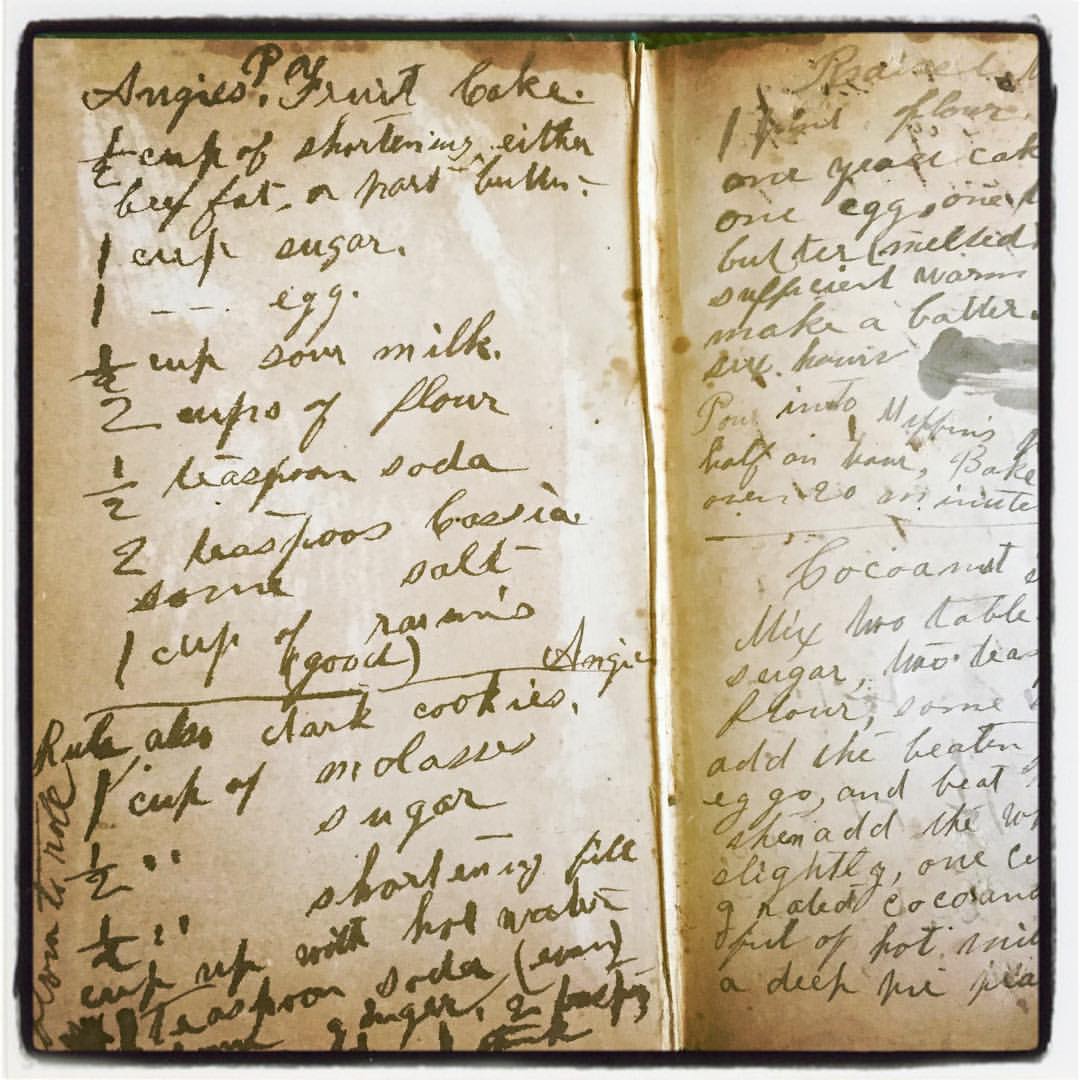 Angies P. Y. Fruit Cake.
1/2 cup of shortening either
beef fat, or part butter.
1 cup sugar.
1 -- -- egg.
1/2 cup sour milk.
2 cups of flour
1/2 teaspoon soda
2 teaspoos Cassia
some salt
1 cup of raisins
(good) Angie
Rule also dark cookies.
1 cup of molasses
1/2 " sugar
1/2 " shortening fill
cup up with hot water
1 Teaspoon soda (even)
ginger, 2
to roll
Raised
1 pint flour
one yeast cak
one egg, one
butter (melted
sufficient warm
make a batter.
six hours
Pour into Muffins
half an hour, Bake
oven 20 minute
Cocoanut
Mix two table
sugar, two teas
flour, some
add the beaten
eggs, and beat
then add the wh
slightly, one cu
grated cocoanu
pint of hot mil
a deep pie pla